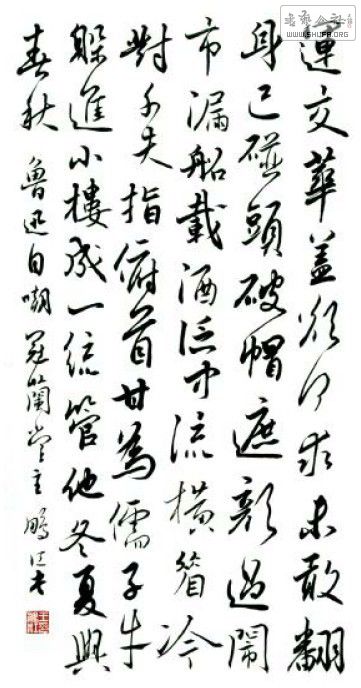 運交華蓋欲何求未敢翻
身已碰頭破帽遮顏過鬧
市漏船載酒泛中流橫眉冷
對千夫指俯首甘為儒子牛
躲進小樓成一統管他冬夏與
春秋 魯迅自嘲 蘭堂主鵬
WWW.SHUFA.ORG